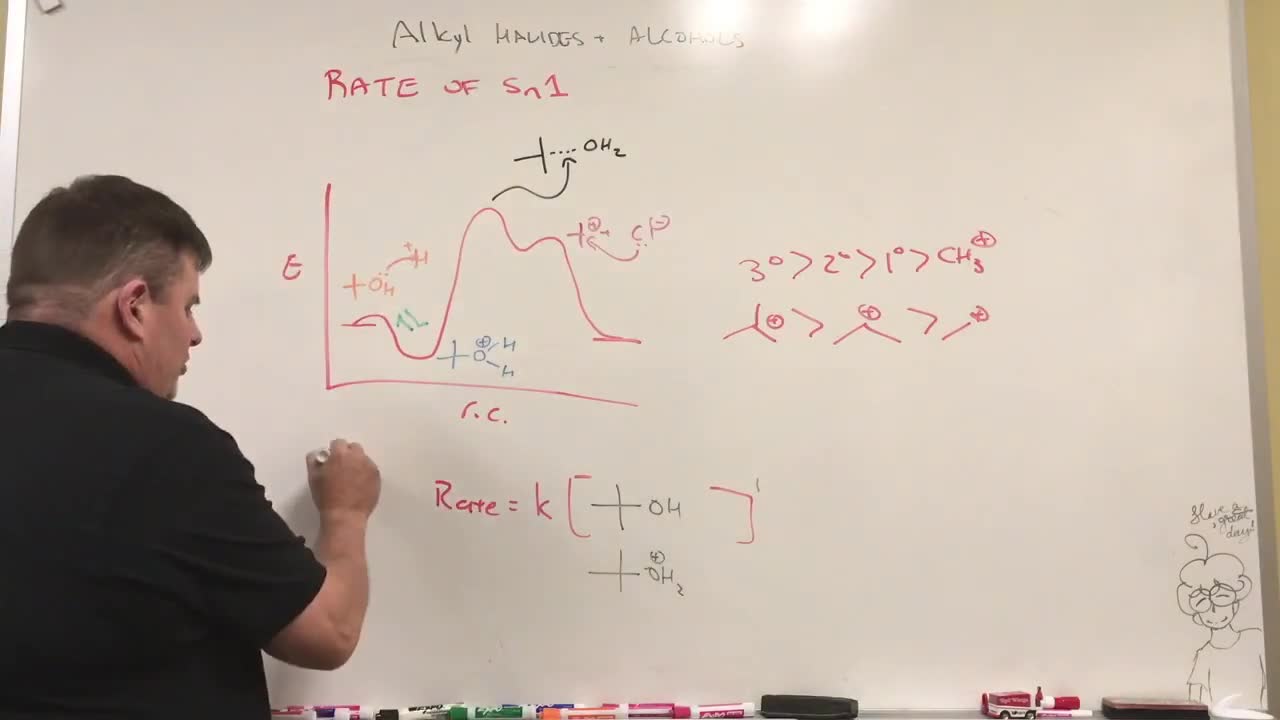 Alkyl HALIDES + ALCOHOLS
RATE OF Sn1
OH₂
E
⊕ + Cl⊖
OH +H
⊕
O H
H
r.c.
3° > 2° > 1° > CH₃⊕
⊕ > ⊕ > ⊕
Rate = k [ OH ]¹
⊕
OH₂
Have a
great
day!